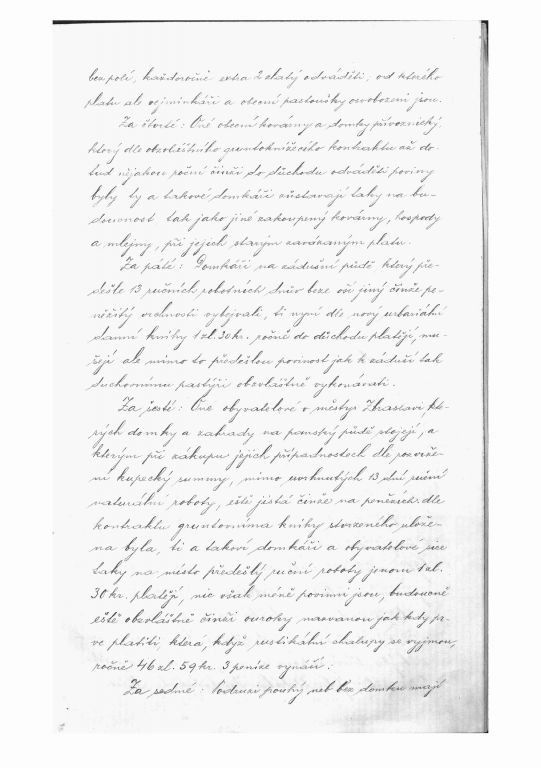 bez polí, každoročně extra 2 zlatý odváděti; od kterého
platu ale vejminkáři a obecní pastoušky osvobozeni jsou.
Za čtvrté: Oné obecní kovárny a domky přívoznický,
který dle obzvláštního gruntoknížecího kontraktu až do-
tud nějakou roční činži do důchodu odváděti povinny
byly ty a takové domkáři zůstávají taky na bu-
doucnost tak jako jiné zakoupený kovárny, hospody
a mlejny, při jejich starým zavázaným platu.
Za páté: Domkáři na zádušní půdě který pře-
dešle 13 ručních robotních dnův beze vší jiný činže pe-
něžitý vrchnosti vybývali, ti nyní dle nový urbariální
danní knihy 1 zl. 30 kr. ročně do důchodu platějí, mu-
sejí ale mimo to předešlou povinost jak k záduší tak
duchovnímu pastýři obzvláštně vykonávati.
Za šesté: Oné obyvatelové v městys Zbraslavi kte-
rých domky a zahrady na panský půdě stojejí, a
kterým při zákupu jejich případnostech dle rozvrže-
ní kupecký summy, mimo uvrhnutých 13 dní ruční
naturální roboty, eště jistá činže na penězích dle
kontraktu gruntovníma knihy stvrzeného ulože-
na byla, ti a takoví domkáři a obyvatelové sice
taky na místo předešlý ruční roboty jenom 1 zl.
30 kr. platějí, nic však méně povinni jsou, budoucně
eště obzvláštně činži ouroky nazvanou jak kdy pr-
ve platiti, která, když rustikální chalupy se vyjmou,
ročně 46 zl. 59 kr. 3 peníze vynáší:
Za sedmé: Podruzi pouhý neb bez domku mají